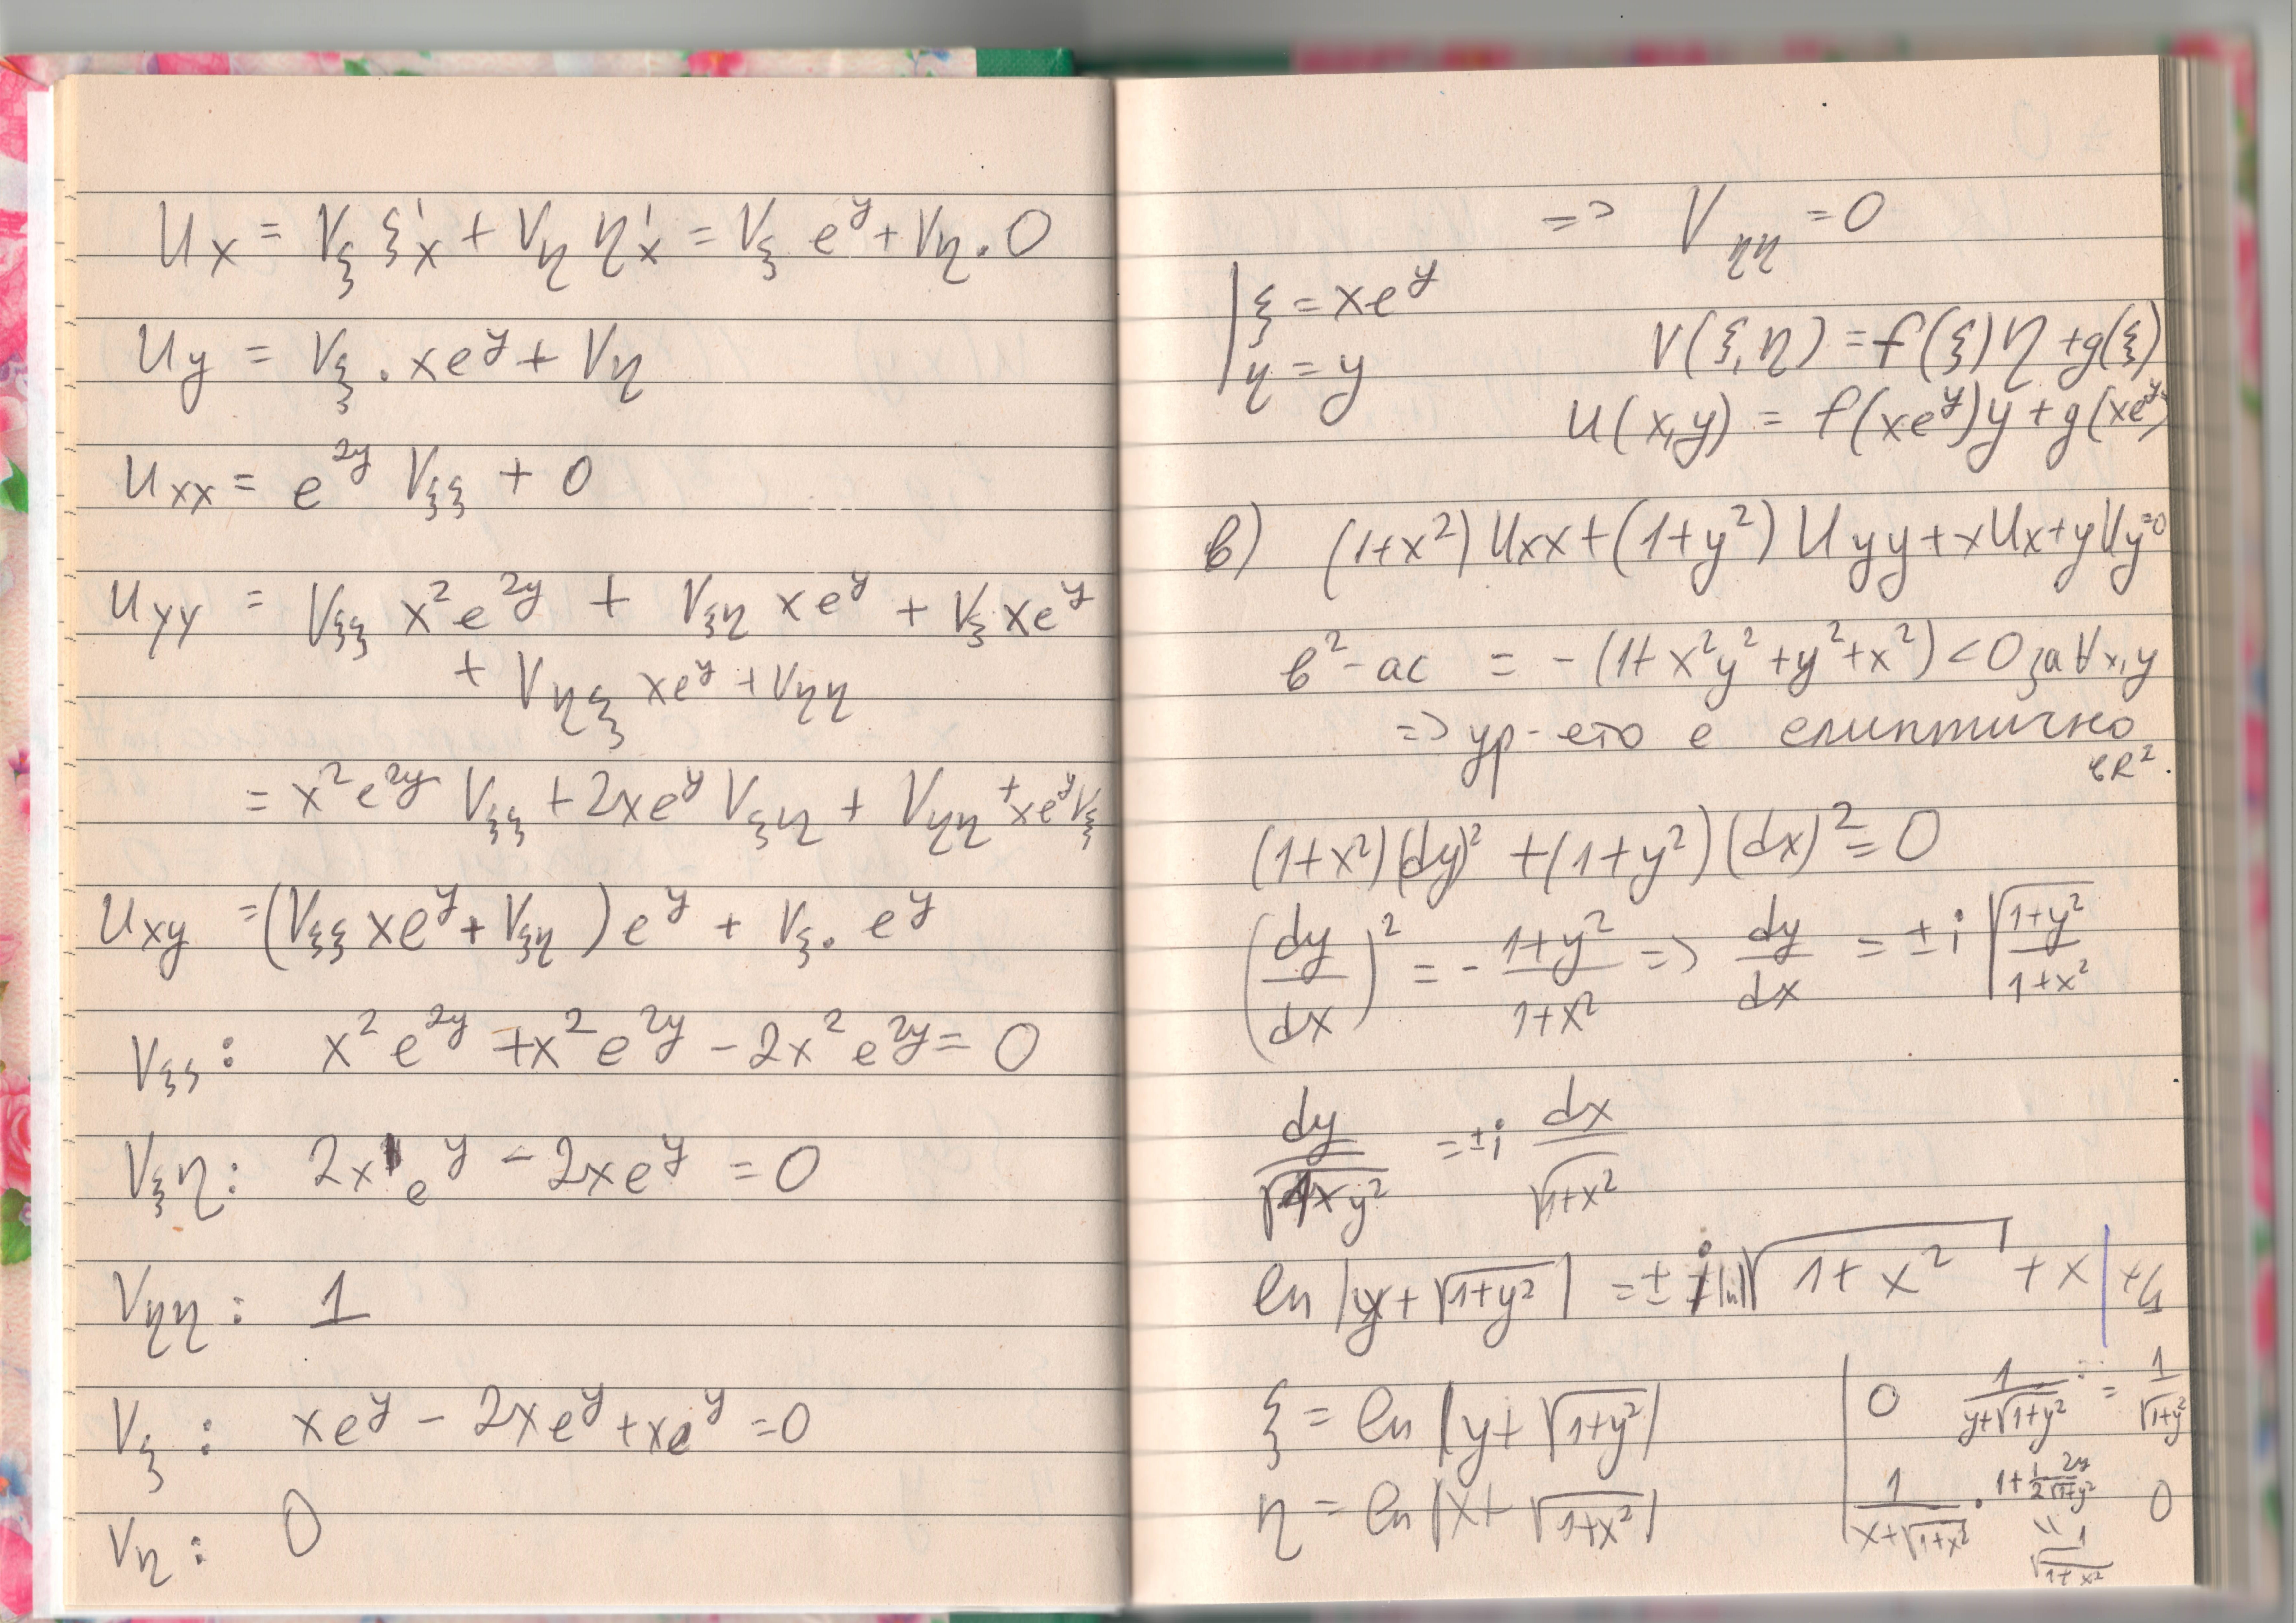 Ux = Vξ ξ'x + Vη η'x = Vξ e^y + Vη . 0
Uy = Vξ . xe^y + Vη
Uxx = e^2y Vξξ + 0
Uyy = Vξξ x²e^2y + Vξη xe^y + Vξ xe^y
+ Vηξ xe^y + Vηη
= x²e^2y Vξξ + 2xe^y Vξη + Vηη + xe^y Vξ
Uxy = (Vξξ xe^y + Vξη) e^y + Vξ. e^y
Vξξ: x² e^2y + x² e^2y - 2x² e^2y = 0
Vξη: 2x e^y - 2xe^y = 0
Vηη: 1
Vξ: xe^y - 2xe^y + xe^y = 0
Vη: 0
=> Vηη = 0
| ξ = xe^y
| η = y
V(ξ,η) = f(ξ)η + g(ξ)
U(x,y) = f(xe^y)y + g(xe^y)
в) (1+x²) Uxx + (1+y²) Uyy + xUx + yUy = 0
в² - ac = -(1 + x²y² + y² + x²) < 0 за ∀x,y
=> ур-ето е елиптично
в R².
(1+x²)(dy)² + (1+y²)(dx)² = 0
(dy/dx)² = - (1+y²)/(1+x²) => dy/dx = ± i √((1+y²)/(1+x²))
dy/√(1+y²) = ± i dx/√(1+x²)
ln |y + √(1+y²)| = ± i ln |√(1+x²) + x| + c₁
ξ = ln |y + √(1+y²)|
η = ln |x + √(1+x²)|
| 0 1/(y+√(1+y²)) ... = 1/√(1+y²)
| 1/(x+√(1+x²)) . 1 + 1/2 2y/√(1+y²) 0
= 1/√(1+x²)